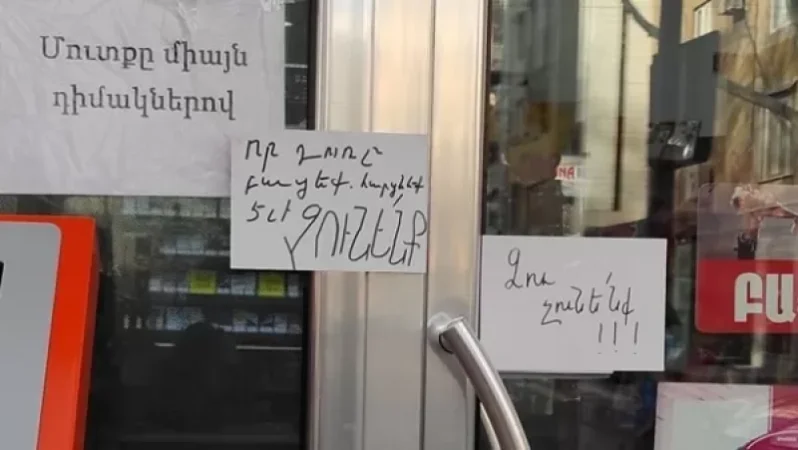 Մուտքը միայն
դիմակներով
Որ դուռը
բացեք. հարցնեք
էլի ՉՈՒՆԵՆՔ
Ձու
չունե՛նք
!!!
ԲԱ
NA